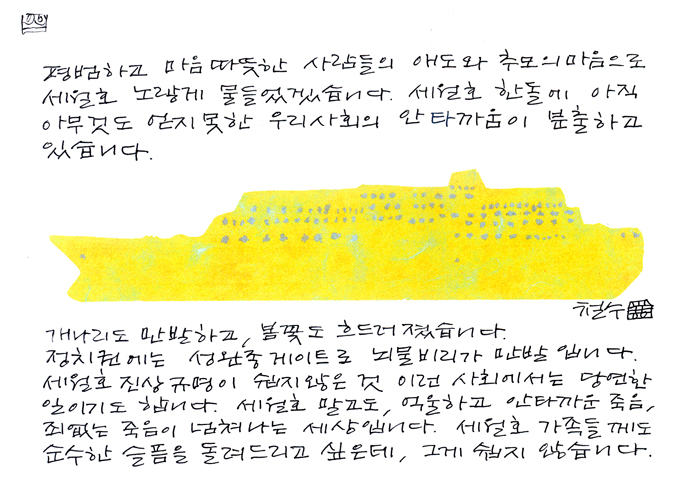 평범하고 마음따뜻한 사람들의 애도와 추모의마음으로
세월호 노랗게 물들었겠습니다. 세월호 한돌에 아직
아무것도 얻지못한 우리사회의 안타까움이 분출하고
있습니다.
철수
개나리도 만발하고, 봄꽃도 흐드러졌습니다.
정치권에는 성완종게이트로 뇌물비리가 만발입니다.
세월호 진상규명이 쉽지않은 것 이런 사회에서는 당연한
일이기도 합니다. 세월호 말고도, 억울하고 안타까운 죽음,
죄없는 죽음이 넘쳐나는 세상입니다. 세월호 가족들께도
순수한 슬픔을 돌려드리고 싶은데, 그게 쉽지 않습니다.